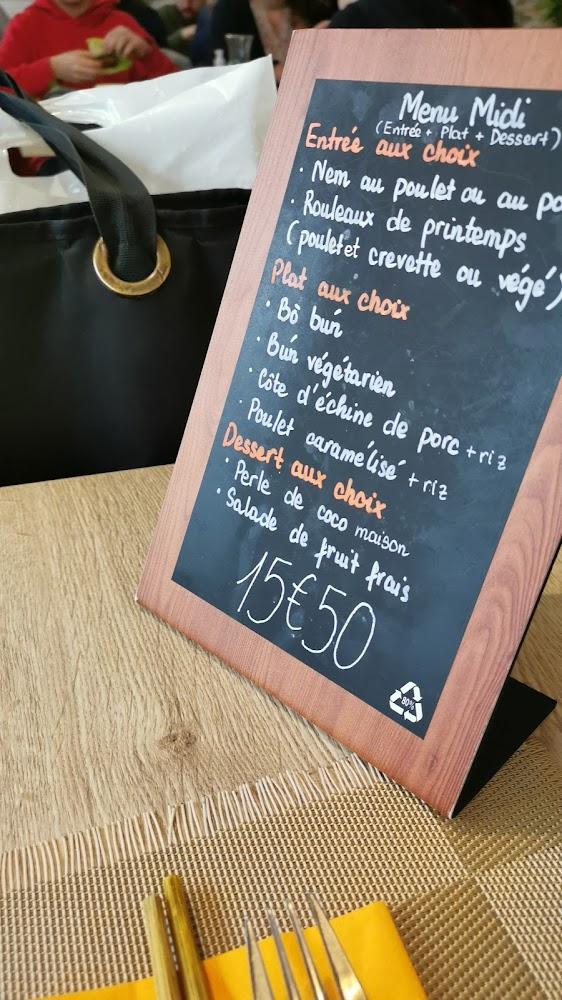 Menu Midi
(Entrée + Plat + Dessert)
Entrée aux choix
• Nem au poulet ou au po
• Rouleaux de printemps
(poulet et crevette ou végé)
Plat aux choix
• Bò bún
• Bún végétarien
• Côte d'échine de porc + riz
• Poulet caramélisé + riz
Dessert aux choix
• Perle de coco maison
• Salade de fruit frais
15€50
80%